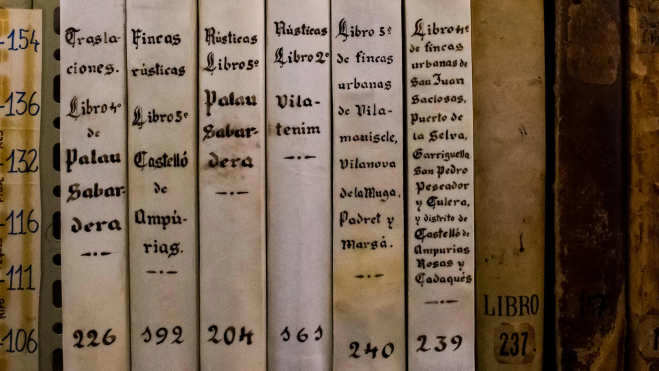 -154
-136
-132
-116
-111
-106
Trasla-
ciones.
Libro 4º
de
Palau
Sabar-
dera
226
Fincas
rústicas
Libro 5º
Castelló
de
Ampú-
rias.
192
Rústicas
Libro 5º
Palau
Sabar-
dera
204
Rústicas
Libro 2º
Vila-
tenim
161
Libro 5º
de fincas
urbanas
de Vila-
maniscle,
Vilanova
de la Muga,
Padret y
Marsá.
240
Libro 4º
de fincas
urbanas de
San Juan
Saclosas,
Puerto de
la Selva,
Garriguella
San Pedro
Pescador
y Culera,
y distrito de
Castelló de
Ampurias
Rosas y
Cadaqués
239
LIBRO
237